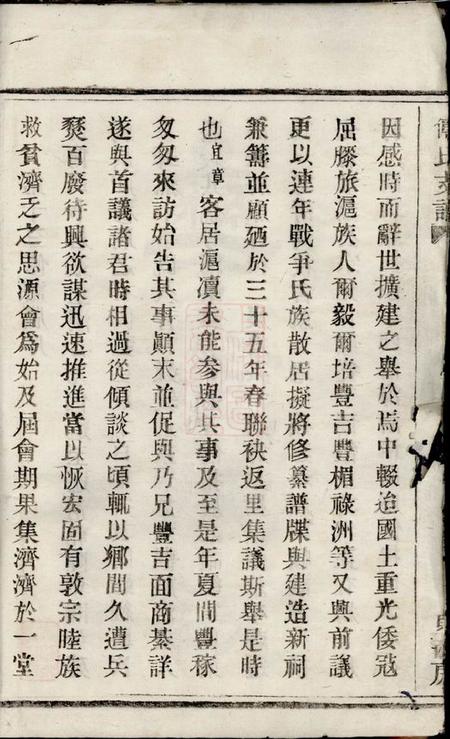 因感時而辭世擴建之舉於焉中輟迨國土重光倭寇
屈滕旅滬族人爾毅爾培豐吉豐楣祿洲等又興前議
更以連年戰爭氏族散居擬將修纂譜牒與建造新祠
兼籌並顧廼於三十五年春聯袂返里集議斯舉是時
也宜章客居滬瀆未能參與其事及至是年夏間豐稼
匆匆來訪始告其事顛末並促與乃兄豐吉面商綦詳
遂與首議諸君時相過從傾談之頃輒以鄉間久遭兵
燹百廢待興欲謀迅速推進當以恢宏固有敦宗睦族
救貧濟乏之思源會為始及屆會期果集濟濟於一堂